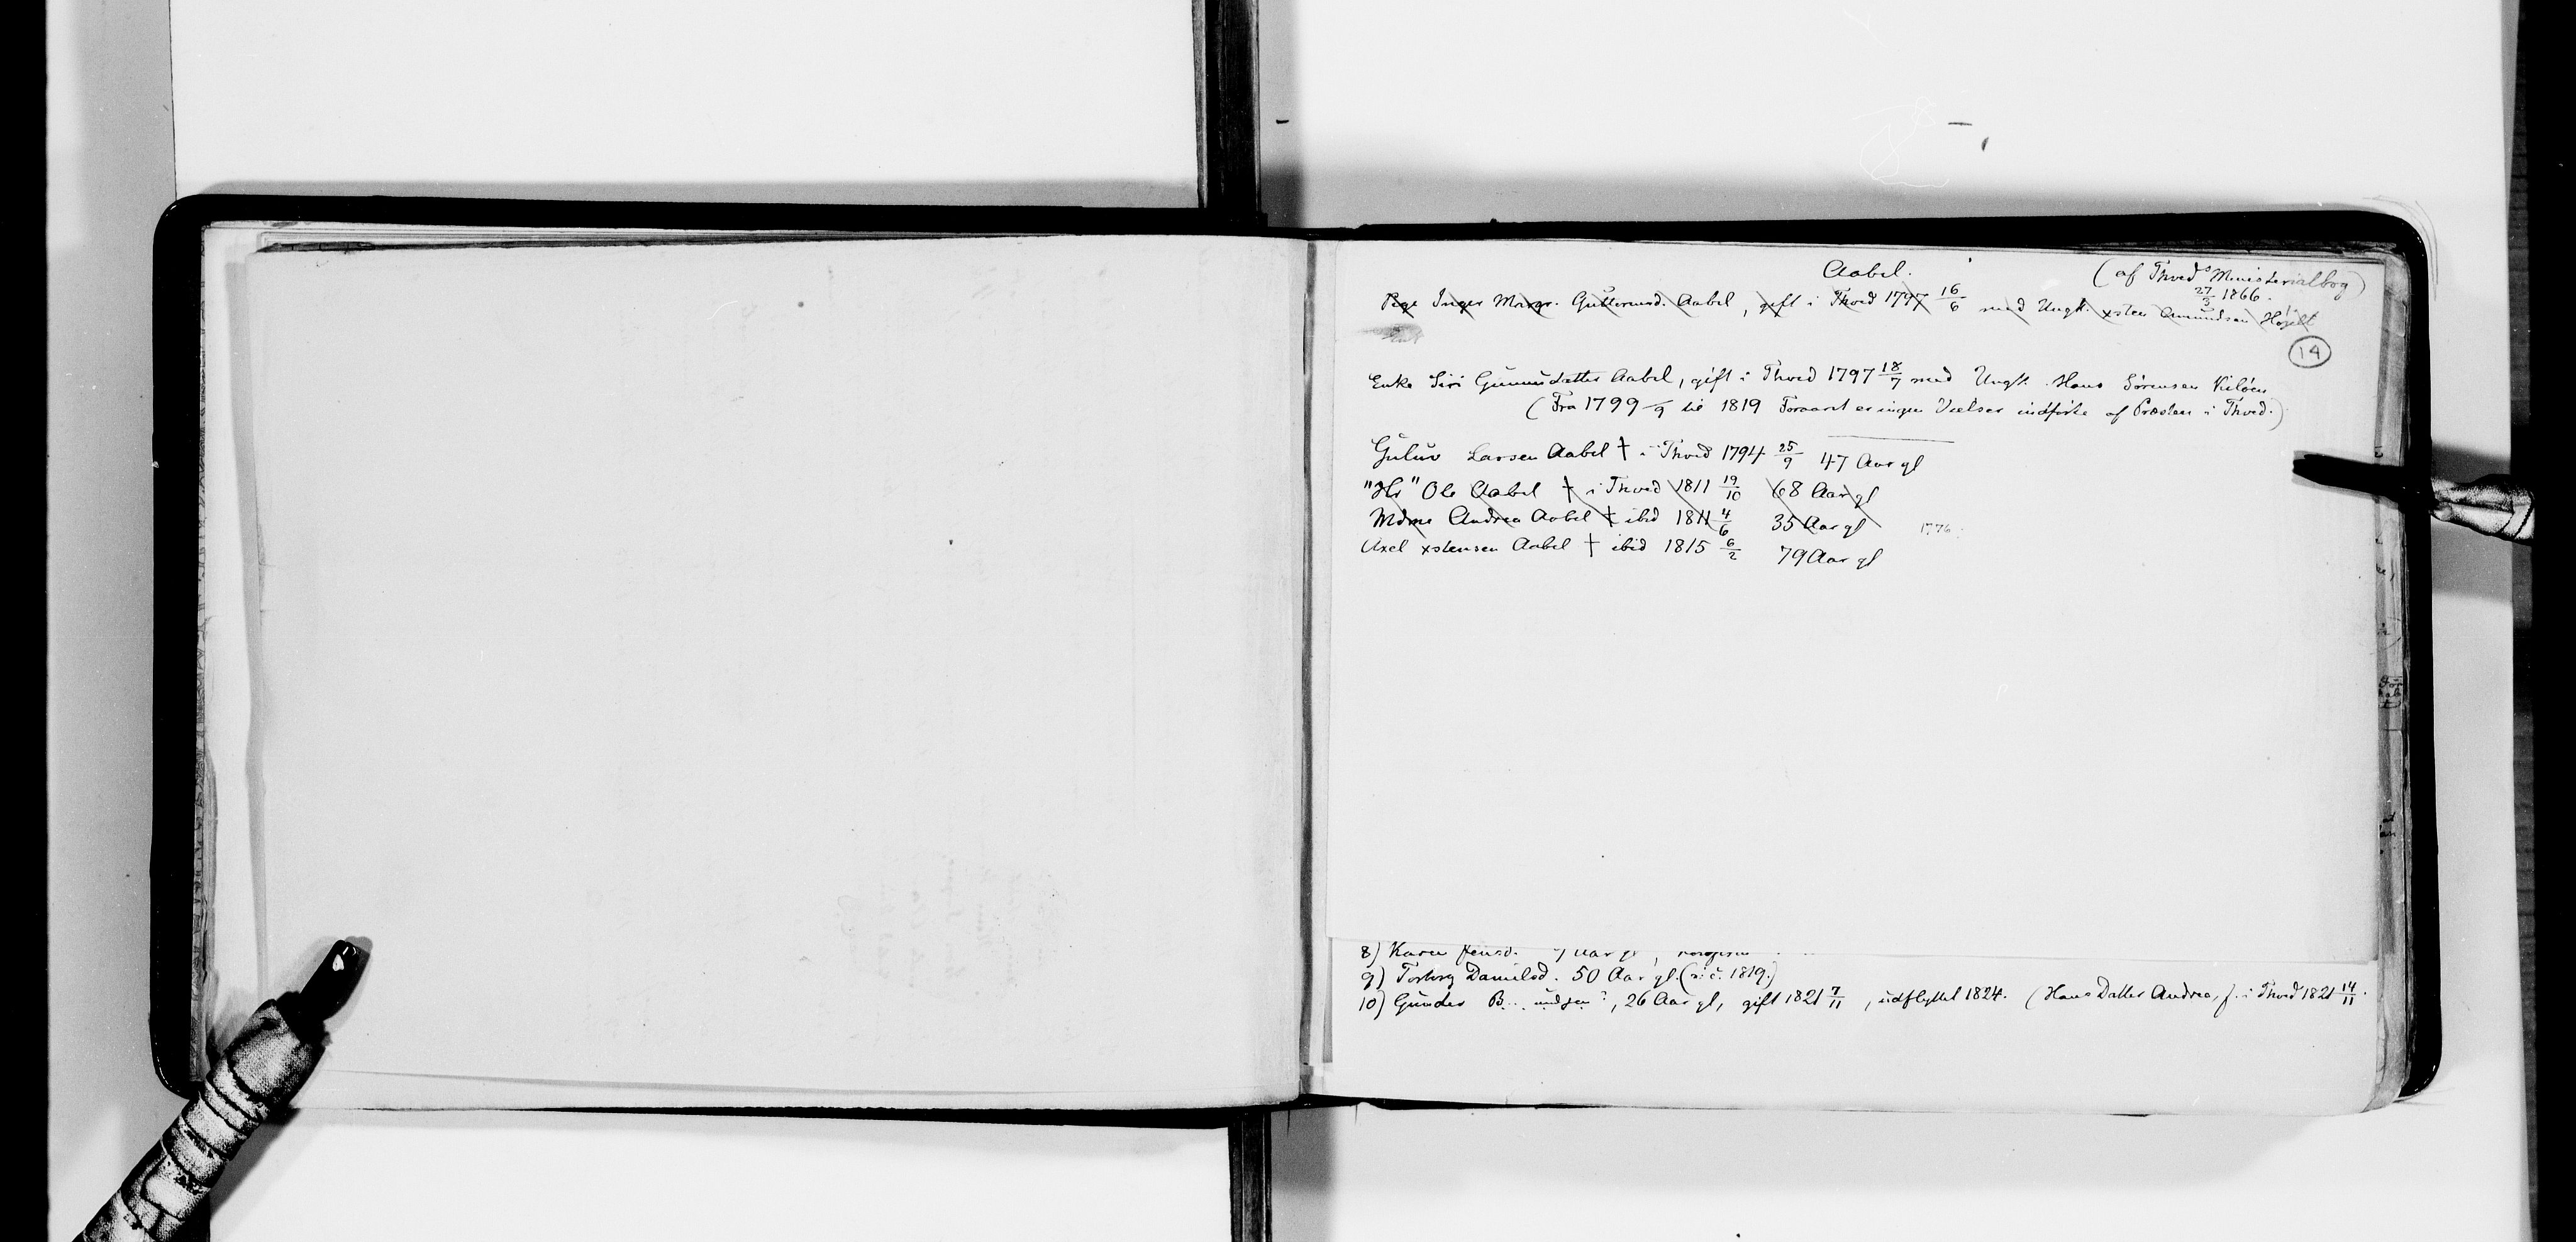 Aabel.
(af Thveds Ministerialbog)
27/3 1866.
Pige Inger Margr. Guttormsd. Aabel, gift i Thved 1797 16/6 med Ungk. xsten Amundsen Højelt
14
Enke Siri Gunnüsdatter Aabel, gift i Thved 1797 18/7 med Ungk. Hans Sörensen Kilöen
(Fra 1799 /9 til 1819 Foraaret er ingen Vielser indförte af Præsten i Thved.)
Gulüv Larsen Aabel † i Thved 1794 25/9 47 Aar gl
"Hr" Ole Aabel † i Thved 1811 19/10 68 Aar gl
Mdme Andrea Aabel † ibid 1811 4/6 35 Aar gl 1776
Axel xstensen Aabel † ibid 1815 6/2 79 Aar gl
8) Karen Jensd. Aar gl,
9) Torborg Danielsd. 50 Aar gl. (n: c. 1819.)
10) Gunder B.. undsen ?, 26 Aar gl, gift 1821 7/11, udflyttet 1824. (Hans Datter Andrea, f. i Thved 1821 14/11.